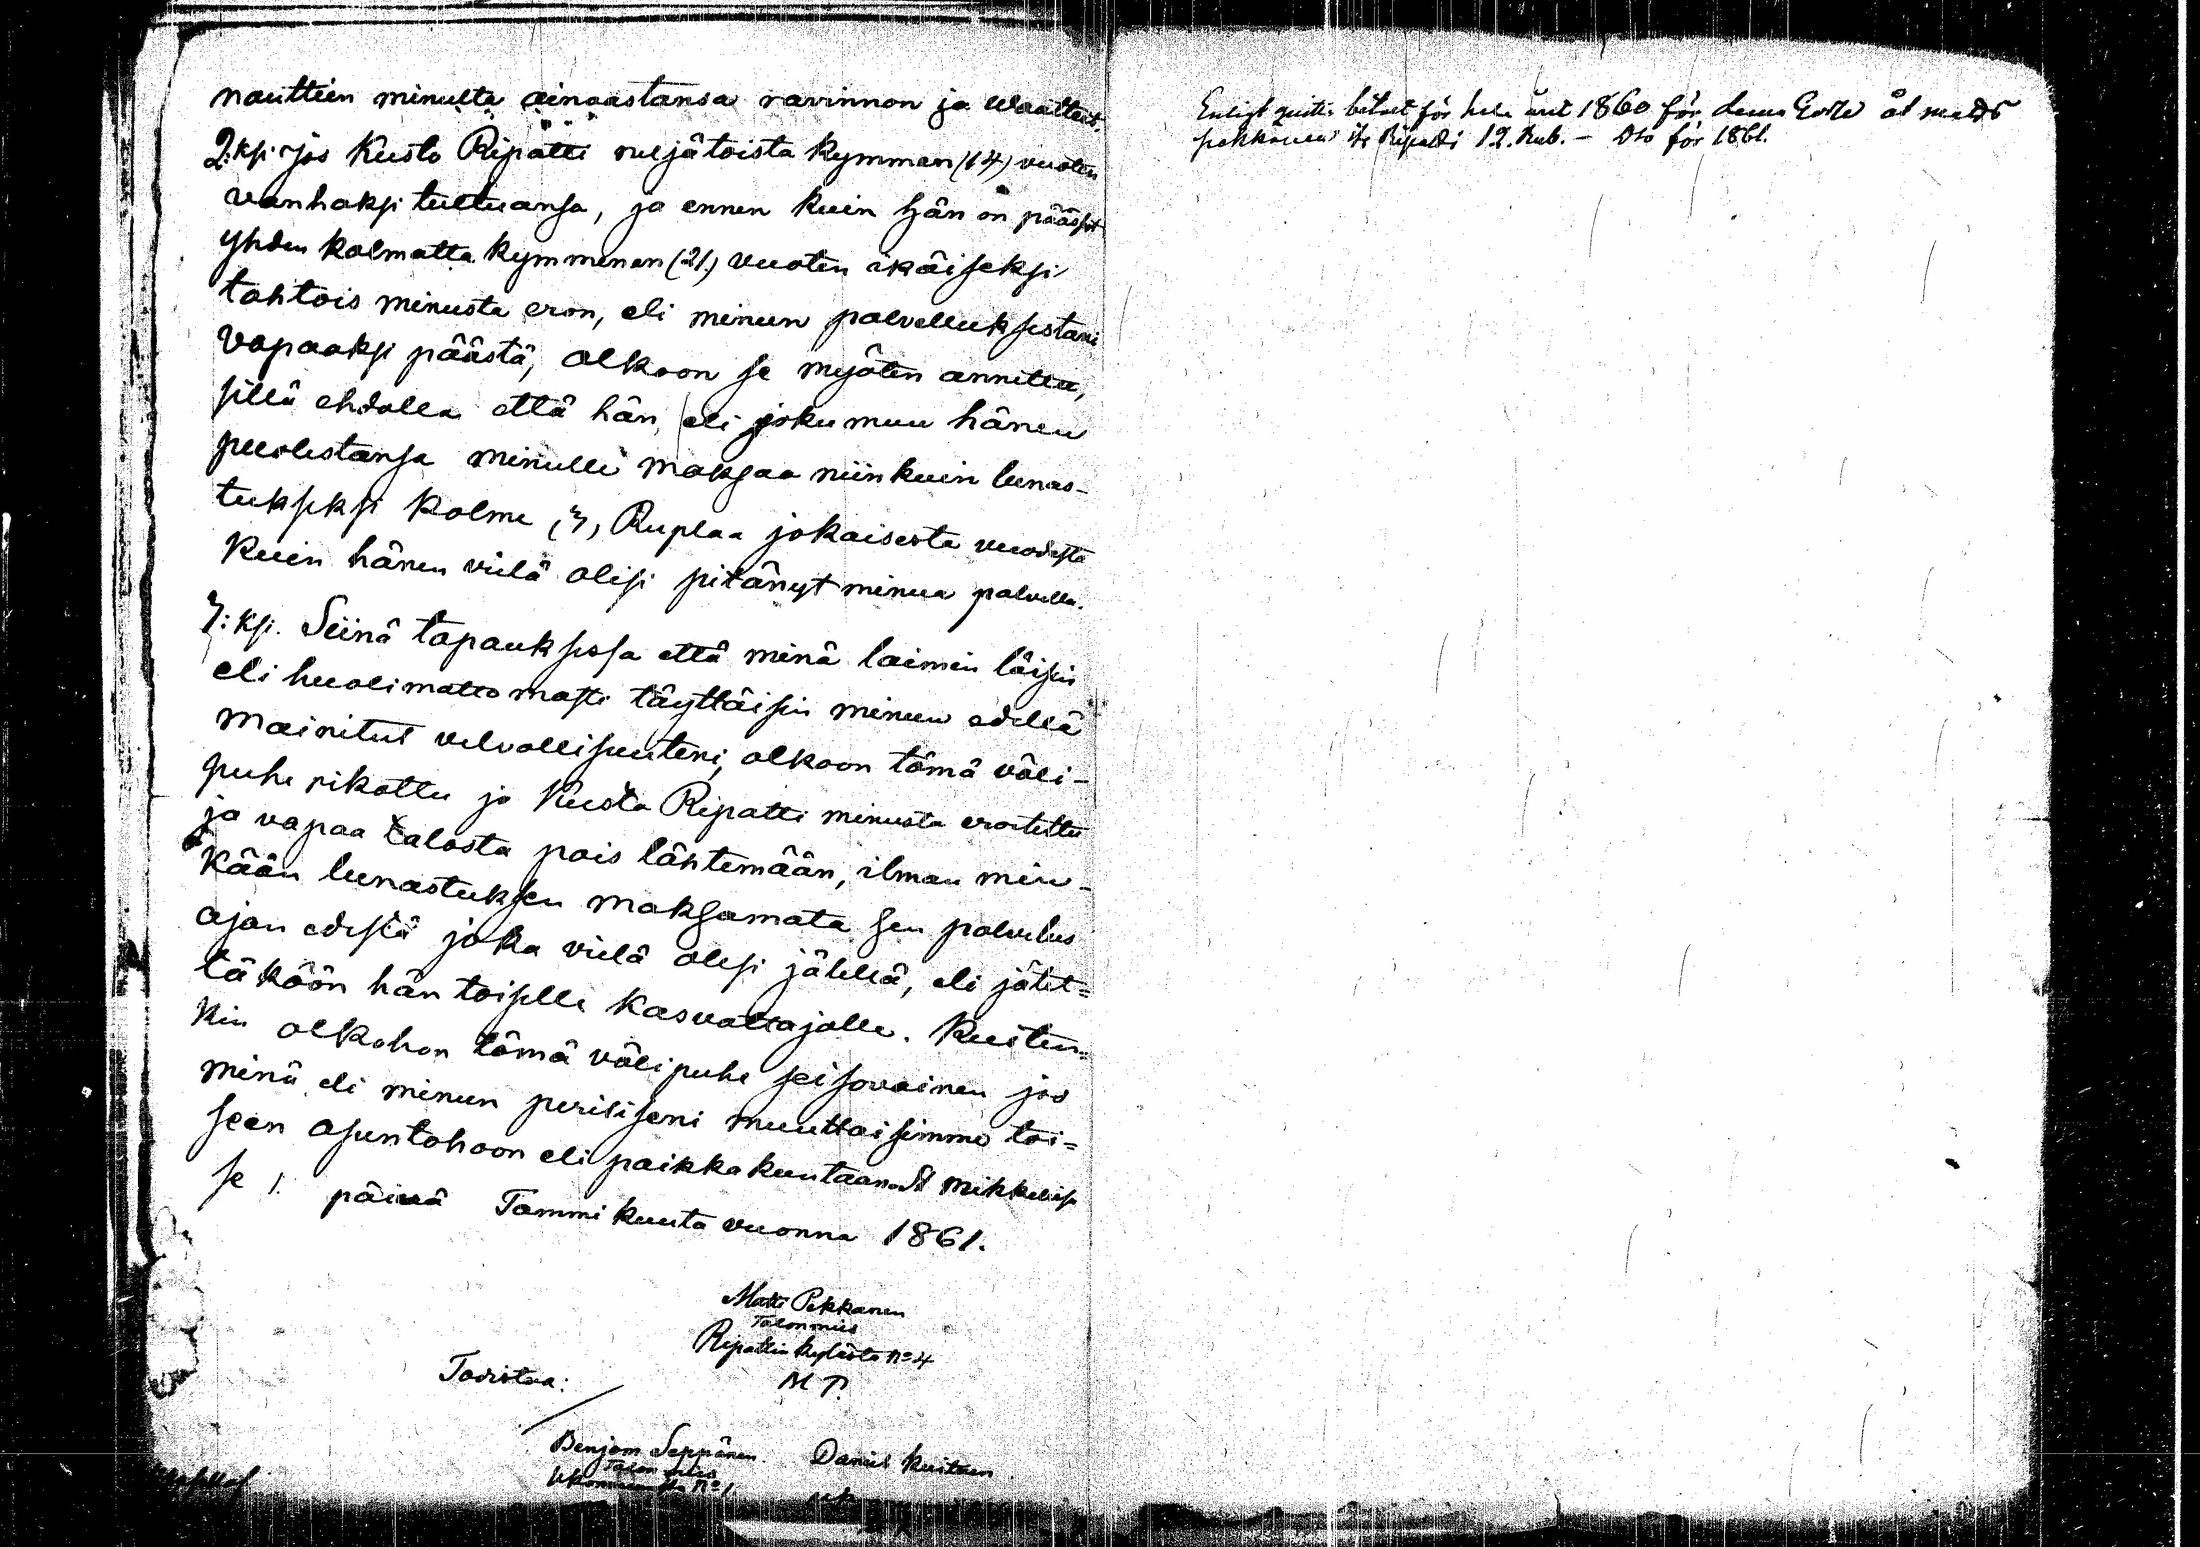 nauttien minulta ainoastansa ravinnon ja waatteet.
2:ksi. Jos Kusto Ripatti neljätoista kymman (14) vuoten
vanhaksi tultuansa, ja ennen kuin hän on päässyt
yhden kolmatta kymmenen (21.) vuoten ikäiseksi
tahtois minusta eron, eli minun palvelluksestani
vapaaksi päästä, olkoon se myöten annettu,
sillä ehdolla että hän, eli joku muu hänen
puolestansa minulle maksaa niinkuin lunas-
tukseksi kolme (3) Ruplaa jokaisesta vuodesta
kuin hänen vielä olisi pitänyt minua palvella.
3:ksi. Siinä tapauksessa että minä laimin löisin
eli huolimattomasti täyttäisin minun edellä
mainitut velvollisuuteni, olkoon tämä väli-
puhe rikottu ja Kusta Ripatti minusta eroitettu
ja vapaa talosta pois lähtemään, ilman min-
kään lunastuksen maksamata sen palvelus
ajan edestä joka vielä olisi jälellä, eli jätet=
täköön hän toiselle kasvattajalle. Kuiten=
kin olkohon tämä välipuhe seisovainen jos
minä eli minun perilliseni muuttaisimme toi=
seen asuntohoon eli paikkakuntaan. St Mikkelissä
se 1. päivä Tammikuuta vuonna 1861.
Matti Pekkanen
Talonmies
Ripatin kylästä No 4
M P.
Todistaa:
Benjam Seppänen Daniel Kuitunen
Talon mies
No 1
Enligt qvitto betalt för hela året 1860 för denna Gosse åt Matts
Pekkanen ifr Ripatti 12. Rub. – Dto för 1861.